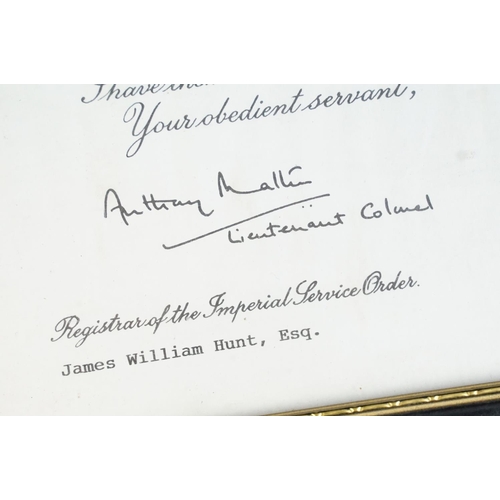 I have the
Your obedient servant,
Anthony Mather
Lieutenant Colonel
Registrar of the Imperial Service Order.
James William Hunt, Esq.